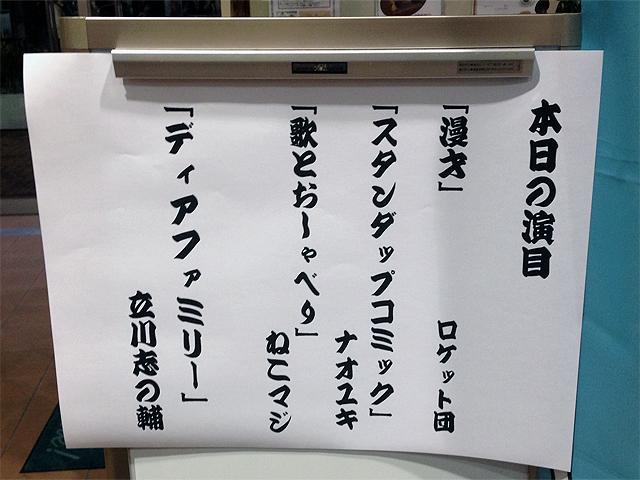 本日の演目
「漫才」
ロケット団
「スタンダップコミック」
ナオユキ
「歌とおしゃべり」
ねこマジ
「ディアファミリー」
立川志の輔